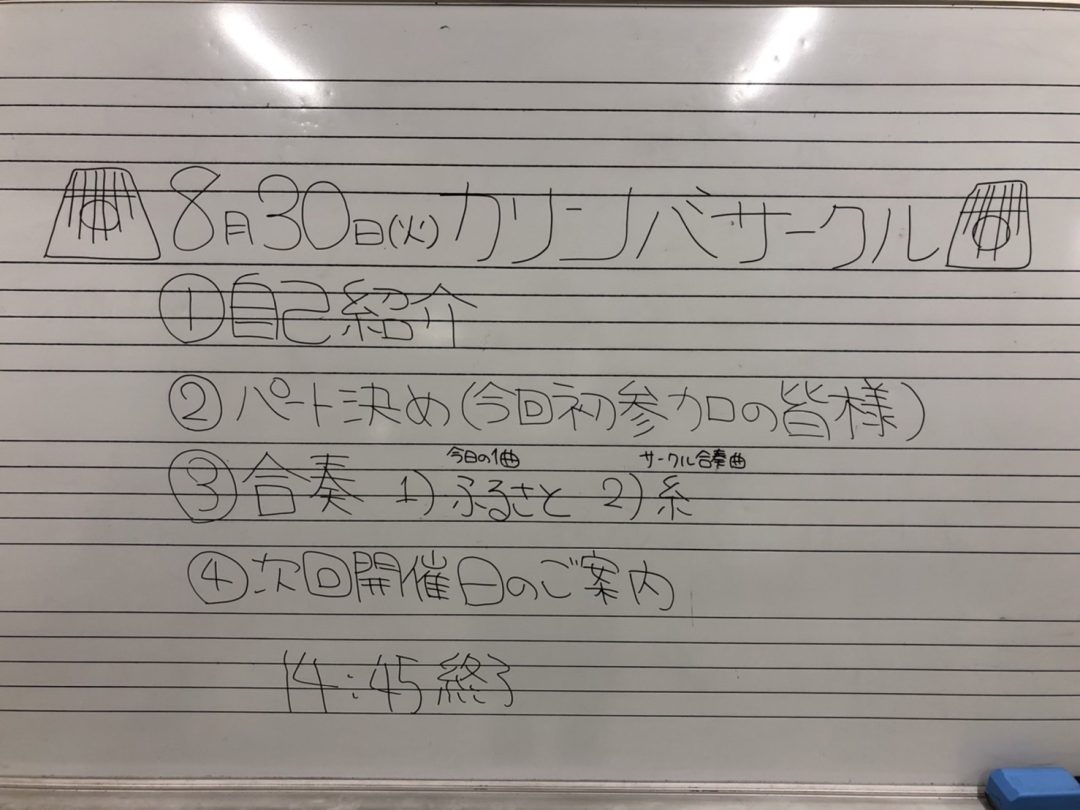 8月30日(火)カリンバサークル
①自己紹介
②パート決め(今回初参加の皆様)
今日の1曲 サークル合奏曲
③合奏 1)ふるさと 2)糸
④次回開催日のご案内
14:45終了